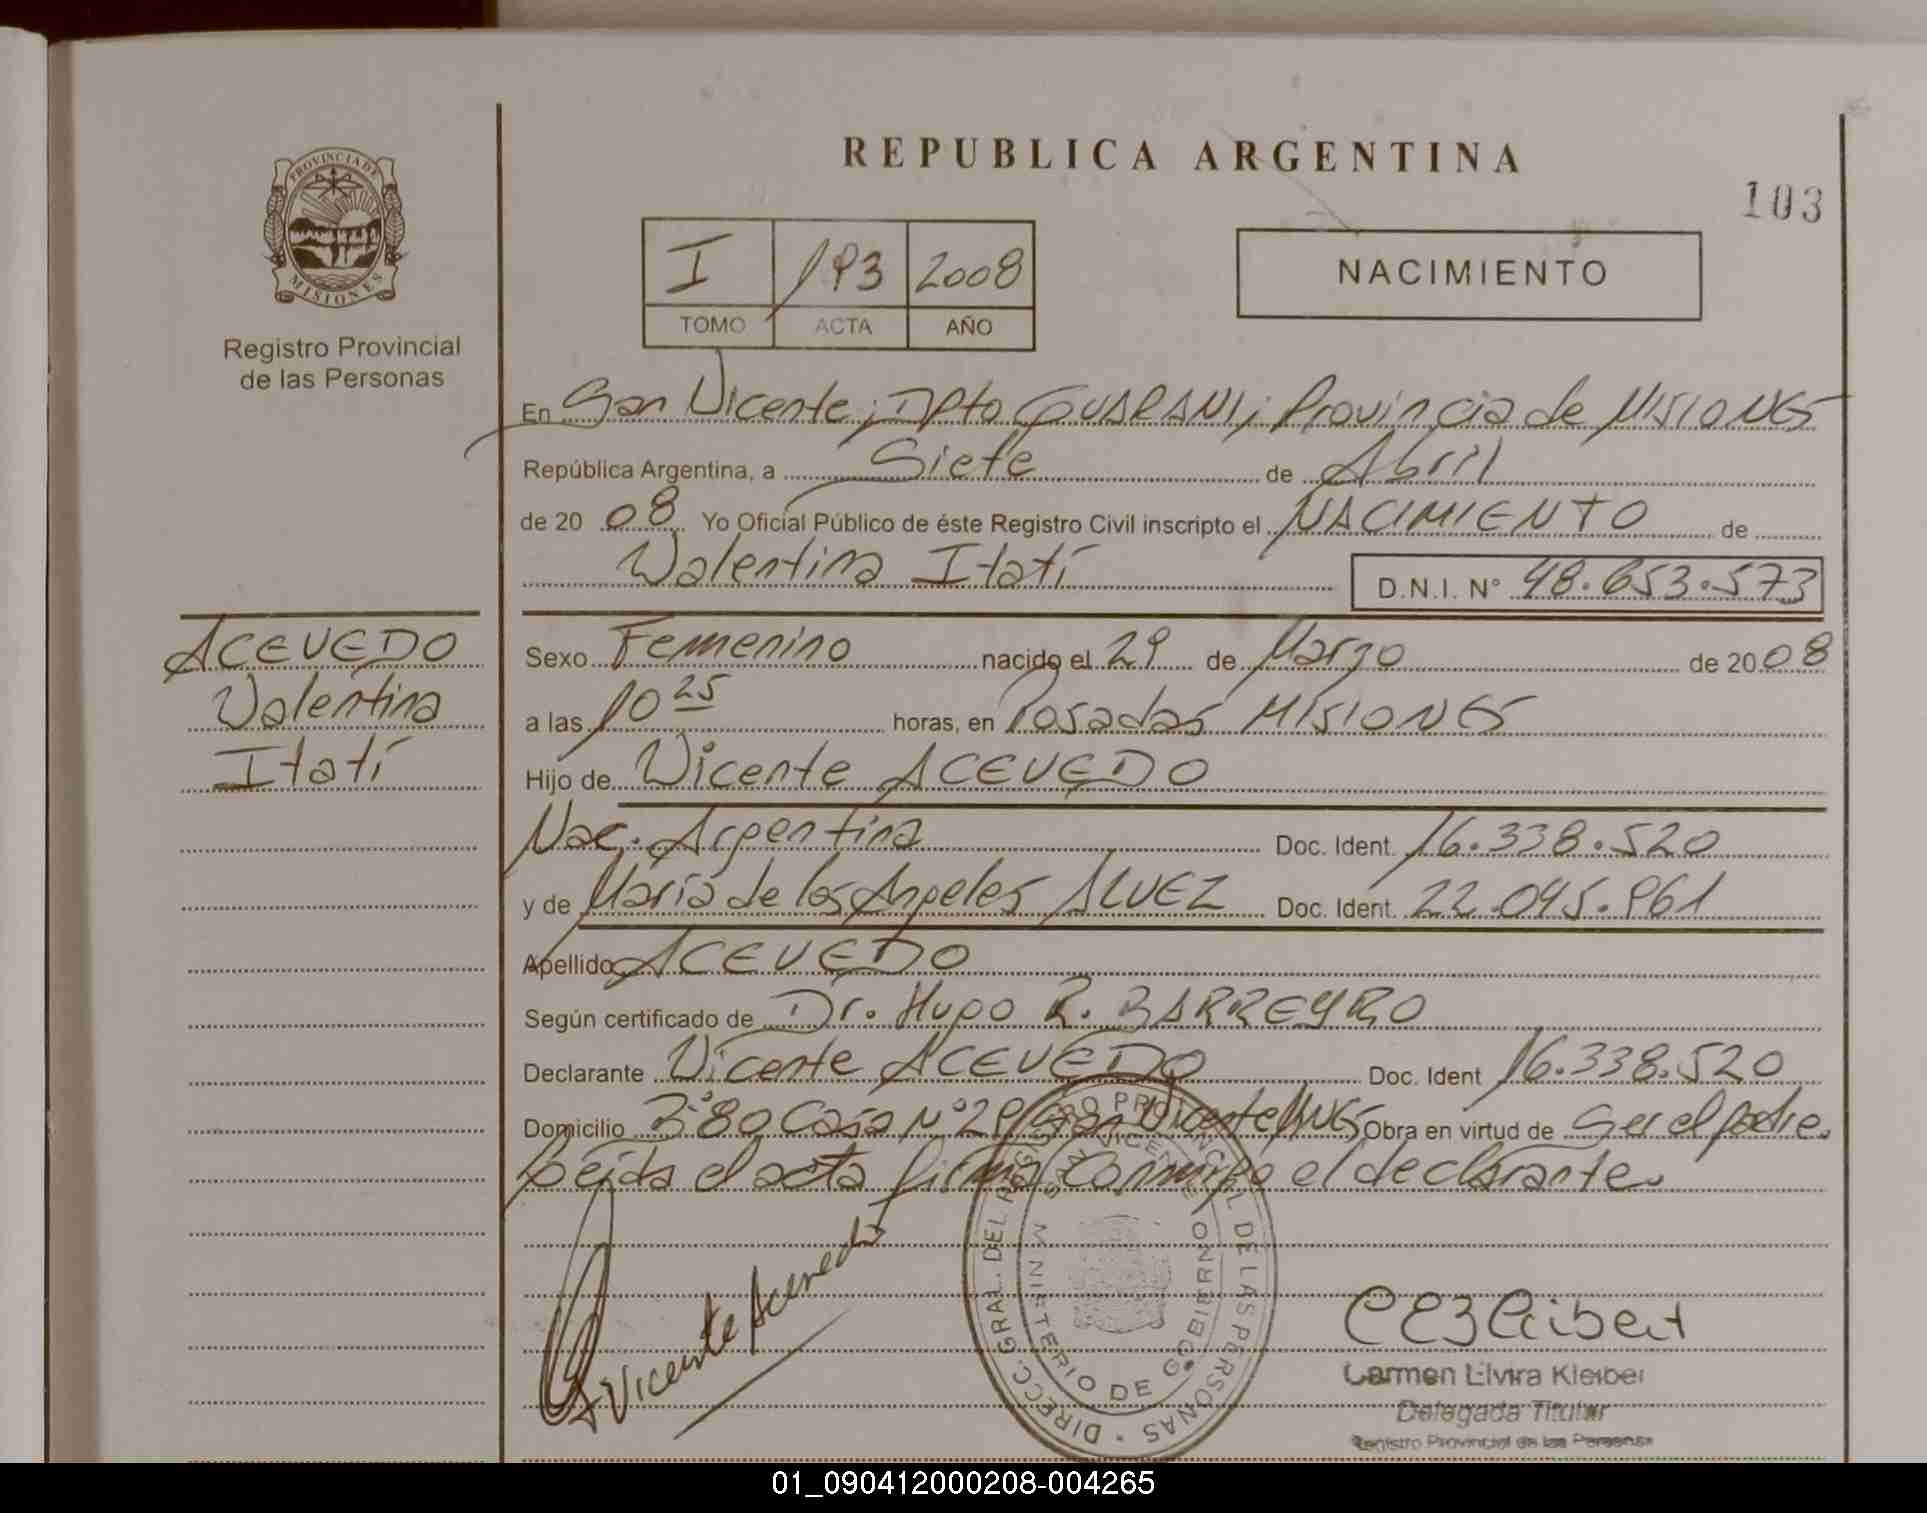 REPUBLICA ARGENTINA
103
PROVINCIA DE
MISIONES
Registro Provincial
de las Personas
I 193 2008
TOMO ACTA AÑO
NACIMIENTO
En San Vicente; Dpto GUARANI; Provincia de MISIONES
República Argentina, a Siete de Abril
de 20 08 Yo Oficial Público de éste Registro Civil inscripto el NACIMIENTO de
Valentina Itatí D.N.I. N° 48.653.573
ACEVEDO
Valentina
Itatí
Sexo Femenino nacido el 29 de Marzo de 2008
a las 10 25 horas, en Posadas MISIONES
Hijo de Vicente ACEVEDO
Nac. Argentina Doc. Ident. 16.338.520
y de María de los Angeles ALVEZ Doc. Ident. 22.045.961
Apellido ACEVEDO
Según certificado de Dr. Hugo R. BARREYRO
Declarante Vicente ACEVEDO Doc. Ident 16.338.520
Domicilio B° 80 Casa N° 29 San Vicente MNES Obra en virtud de Ser el padre.
Leída el acta firma conmigo el declarante.
Vicente Acevedo
DIRECC. GRAL. DEL REGISTRO PROVINCIAL DE LAS PERSONAS
SAN VICENTE
MINISTERIO DE GOBIERNO
Carmen Elvira Kleiber
Delegada Titular
Registro Provincial de las Personas
01_090412000208-004265